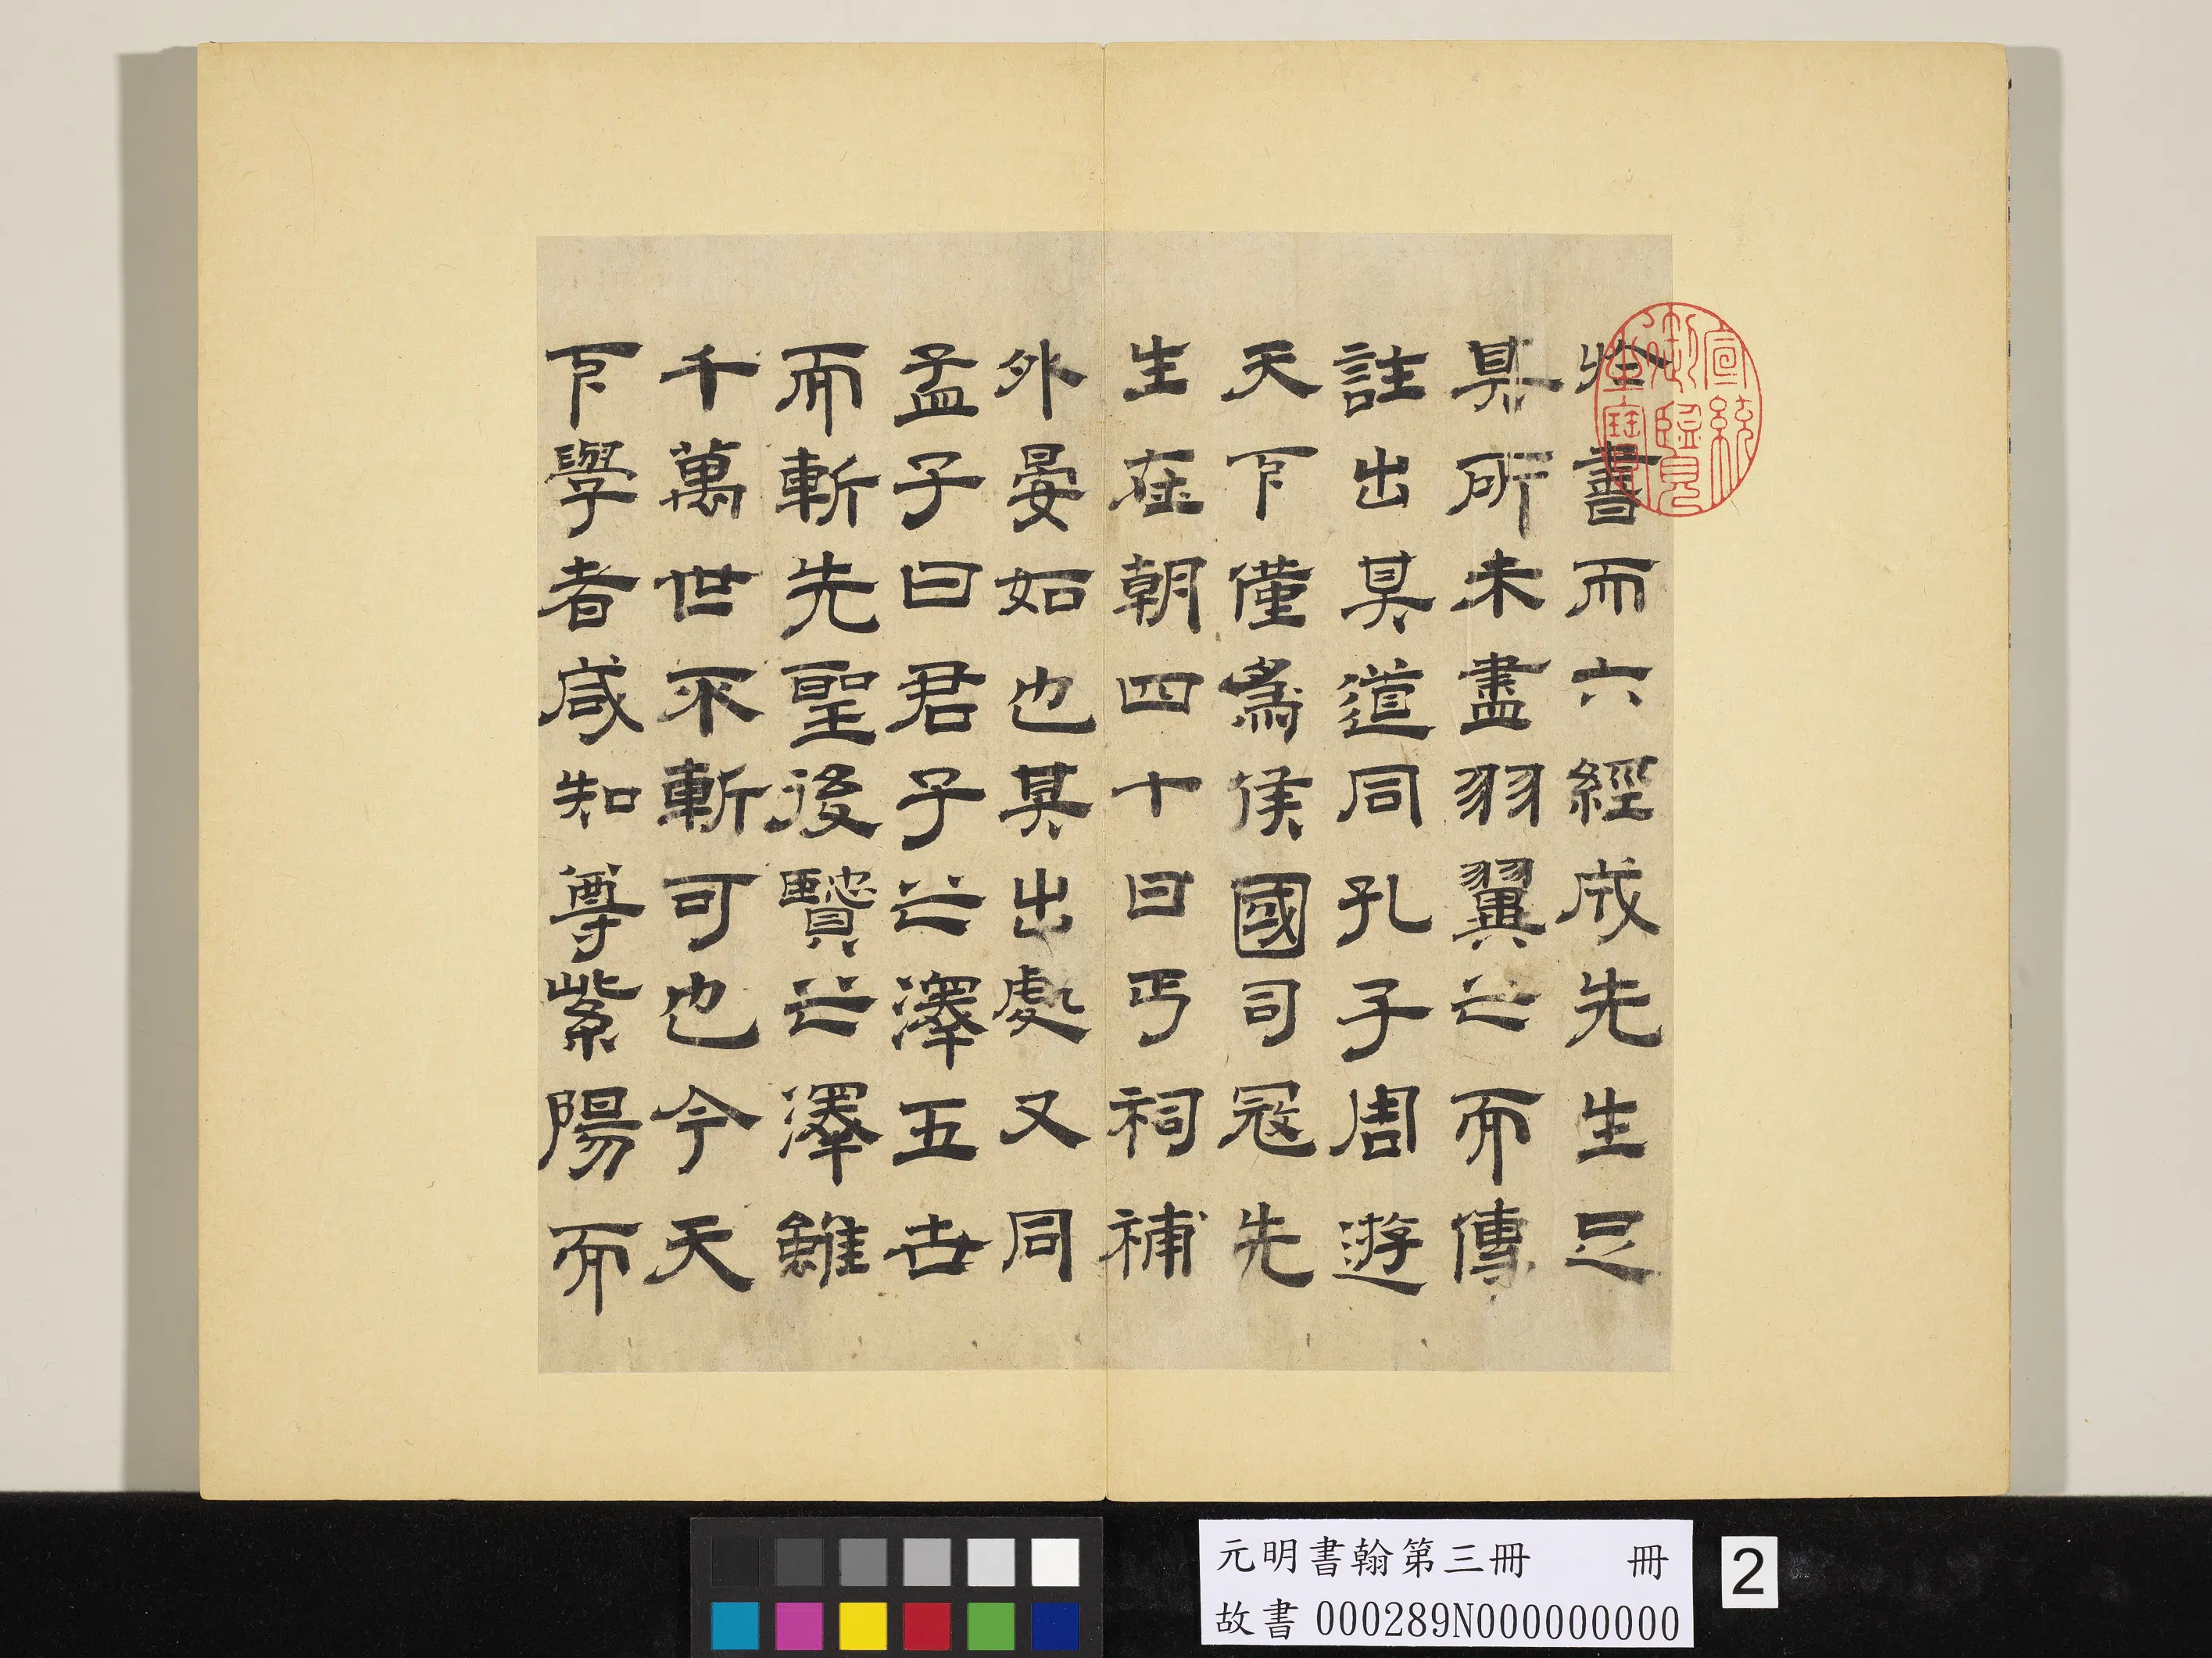 書而六經成先生足
其所未盡羽翼之而傳
註出其道同孔子周遊
天下僅爲侯國司冦先
生在朝四十日丐祠補
外晏如也其出處又同
孟子曰君子之澤五世
而斬先聖後賢之澤雖
千萬世不斬可也今天
下學者咸知尊紫陽而
宣統
御覽
之寶
元明書翰第三冊 冊
故書 000289N000000000
2